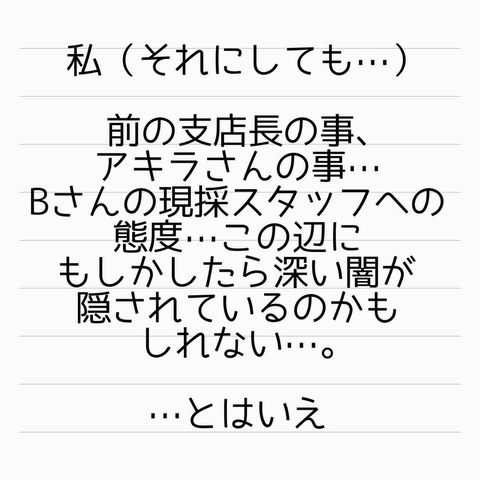 私（それにしても…）
前の支店長の事、
アキラさんの事…
Bさんの現採スタッフへの
態度…この辺に
もしかしたら深い闇が
隠されているのかも
しれない…。
…とはいえ